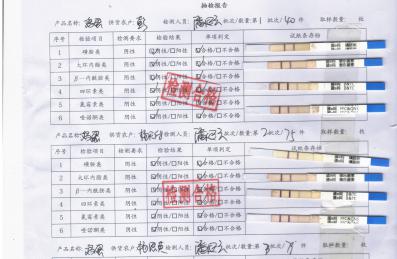 抽检报告
产品名称: 鸡蛋 供货农户: 检测人员: 批次/数量:第1批次/40件 取样数量: 枚
序号 检验项目 检测要求 检验结果 单项判定 试纸条存档
1 磺胺类 阴性 ☑阴性/□阳性 ☑合格/□不合格
2 大环内酯类 阴性 ☑阴性/□阳性 ☑合格/□不合格
3 β—内酰胺类 阴性 ☑阴性/□阳性 ☑合格/□不合格
4 四环素类 阴性 ☑阴性/□阳性 ☑合格/□不合格
5 氟霉素类 阴性 ☑阴性/□阳性 ☑合格/□不合格
6 喹诺酮类 阴性 ☑阴性/□阳性 ☑合格/□不合格
检测合格
产品名称: 鸡蛋 供货农户: 检测人员: 批次/数量:第2批次/75件 取样数量: 枚
序号 检验项目 检测要求 检验结果 单项判定 试纸条存档
1 磺胺类 阴性 ☑阴性/□阳性 ☑合格/□不合格
2 大环内酯类 阴性 ☑阴性/□阳性 ☑合格/□不合格
3 β—内酰胺类 阴性 ☑阴性/□阳性 ☑合格/□不合格
4 四环素类 阴性 ☑阴性/□阳性 ☑合格/□不合格
5 氟霉素类 阴性 ☑阴性/□阳性 ☑合格/□不合格
6 喹诺酮类 阴性 ☑阴性/□阳性 ☑合格/□不合格
检测合格
产品名称: 鸡蛋 供货农户: 检测人员: 批次/数量:第 批次/ 件 取样数量: 枚